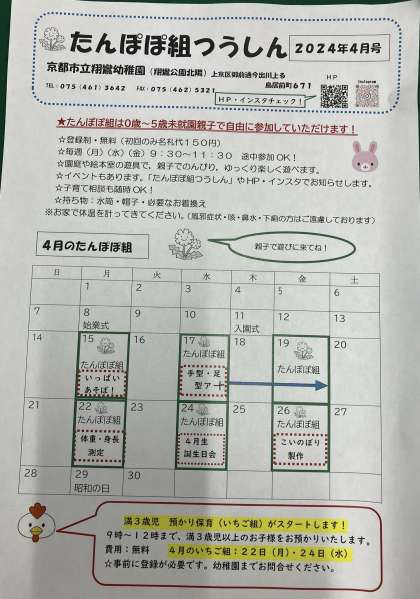 たんぽぽ組つうしん
2024年4月号
京都市立翔鸞幼稚園（翔鸞公園北隣）上京区御前通今出川上る
鳥居前町671
TEL：075(461)3642 FAX：075(462)5321
HP・インスタチェック！
HP
Instagram
★たんぽぽ組は0歳～5歳未就園親子で自由に参加していただけます！
☆登録制・無料（初回のみ名札代150円）
☆毎週（月）（水）（金）9：30～11：30 途中参加OK！
☆園庭や絵本室の遊具で、親子でのんびり、ゆっくり楽しく遊べます。
☆イベントもあります。「たんぽぽ組つうしん」やHP・インスタでお知らせします。
☆子育て相談も随時OK！
☆持ち物：水筒・帽子・必要なお着換え
※お家で体温を計ってきてください。（風邪症状・咳・鼻水・下痢の方はご遠慮しております）
4月のたんぽぽ組
親子で遊びに来てね！
日 月 火 水 木 金 土
1 2 3 4 5 6
7 8 9 10 11 12 13
始業式 入園式
14 15 16 17 18 19 20
たんぽぽ組 たんぽぽ組 たんぽぽ組
いっぱい 手型・足
あそぼ！ 型アー
21 22 23 24 25 26 27
たんぽぽ組 たんぽぽ組 たんぽぽ組
体重・身長 4月生 こいのぼり
測定 誕生日会 製作
28 29 30
昭和の日
満3歳児 預かり保育（いちご組）がスタートします！
9時～12時まで、満3歳児以上のお子様をお預かりいたします。
費用：無料 4月のいちご組：22日（月）・24日（水）
☆事前に登録が必要です。幼稚園までお問合せください。